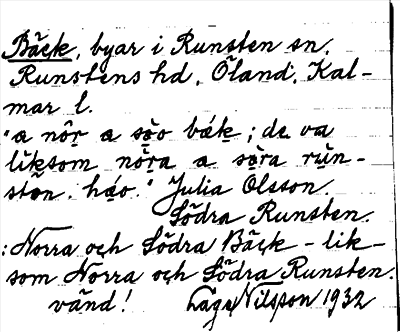 Bäck, byar i Runsten sn.
Runstens hd. Öland. Kal-
mar l.
"a nôṛ a sạ̊o bák; de va
liksom nôṛa a sạ̊ra rùn-
stǝn. háo." Julia Olsson.
Södra Runsten.
: Norra och Södra Bäck - lik-
som Norra och Södra Runsten.
vänd! Lage Nilsson 1932